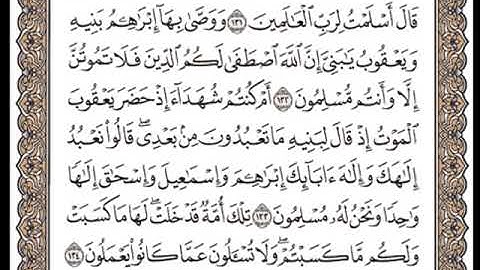 قَالَ أَسْلَمْتُ لِرَبِّ ٱلْعَٰلَمِينَ ١٣١ وَوَصَّىٰ بِهَآ إِبْرَٰهِـۧمُ بَنِيهِ
وَيَعْقُوبُ يَٰبَنِىَّ إِنَّ ٱللَّهَ ٱصْطَفَىٰ لَكُمُ ٱلدِّينَ فَلَا تَمُوتُنَّ
إِلَّا وَأَنتُم مُّسْلِمُونَ ١٣٢ أَمْ كُنتُمْ شُهَدَآءَ إِذْ حَضَرَ يَعْقُوبَ
ٱلْمَوْتُ إِذْ قَالَ لِبَنِيهِ مَا تَعْبُدُونَ مِنۢ بَعْدِى ۖ قَالُوا۟ نَعْبُدُ
إِلَٰهَكَ وَإِلَٰهَ ءَابَآئِكَ إِبْرَٰهِـۧمَ وَإِسْمَٰعِيلَ وَإِسْحَٰقَ إِلَٰهًا
وَٰحِدًا وَنَحْنُ لَهُۥ مُسْلِمُونَ ١٣٣ تِلْكَ أُمَّةٌ قَدْ خَلَتْ ۖ لَهَا مَا كَسَبَتْ
وَلَكُم مَّا كَسَبْتُمْ ۖ وَلَا تُسْـَٔلُونَ عَمَّا كَانُوا۟ يَعْمَلُونَ ١٣٤